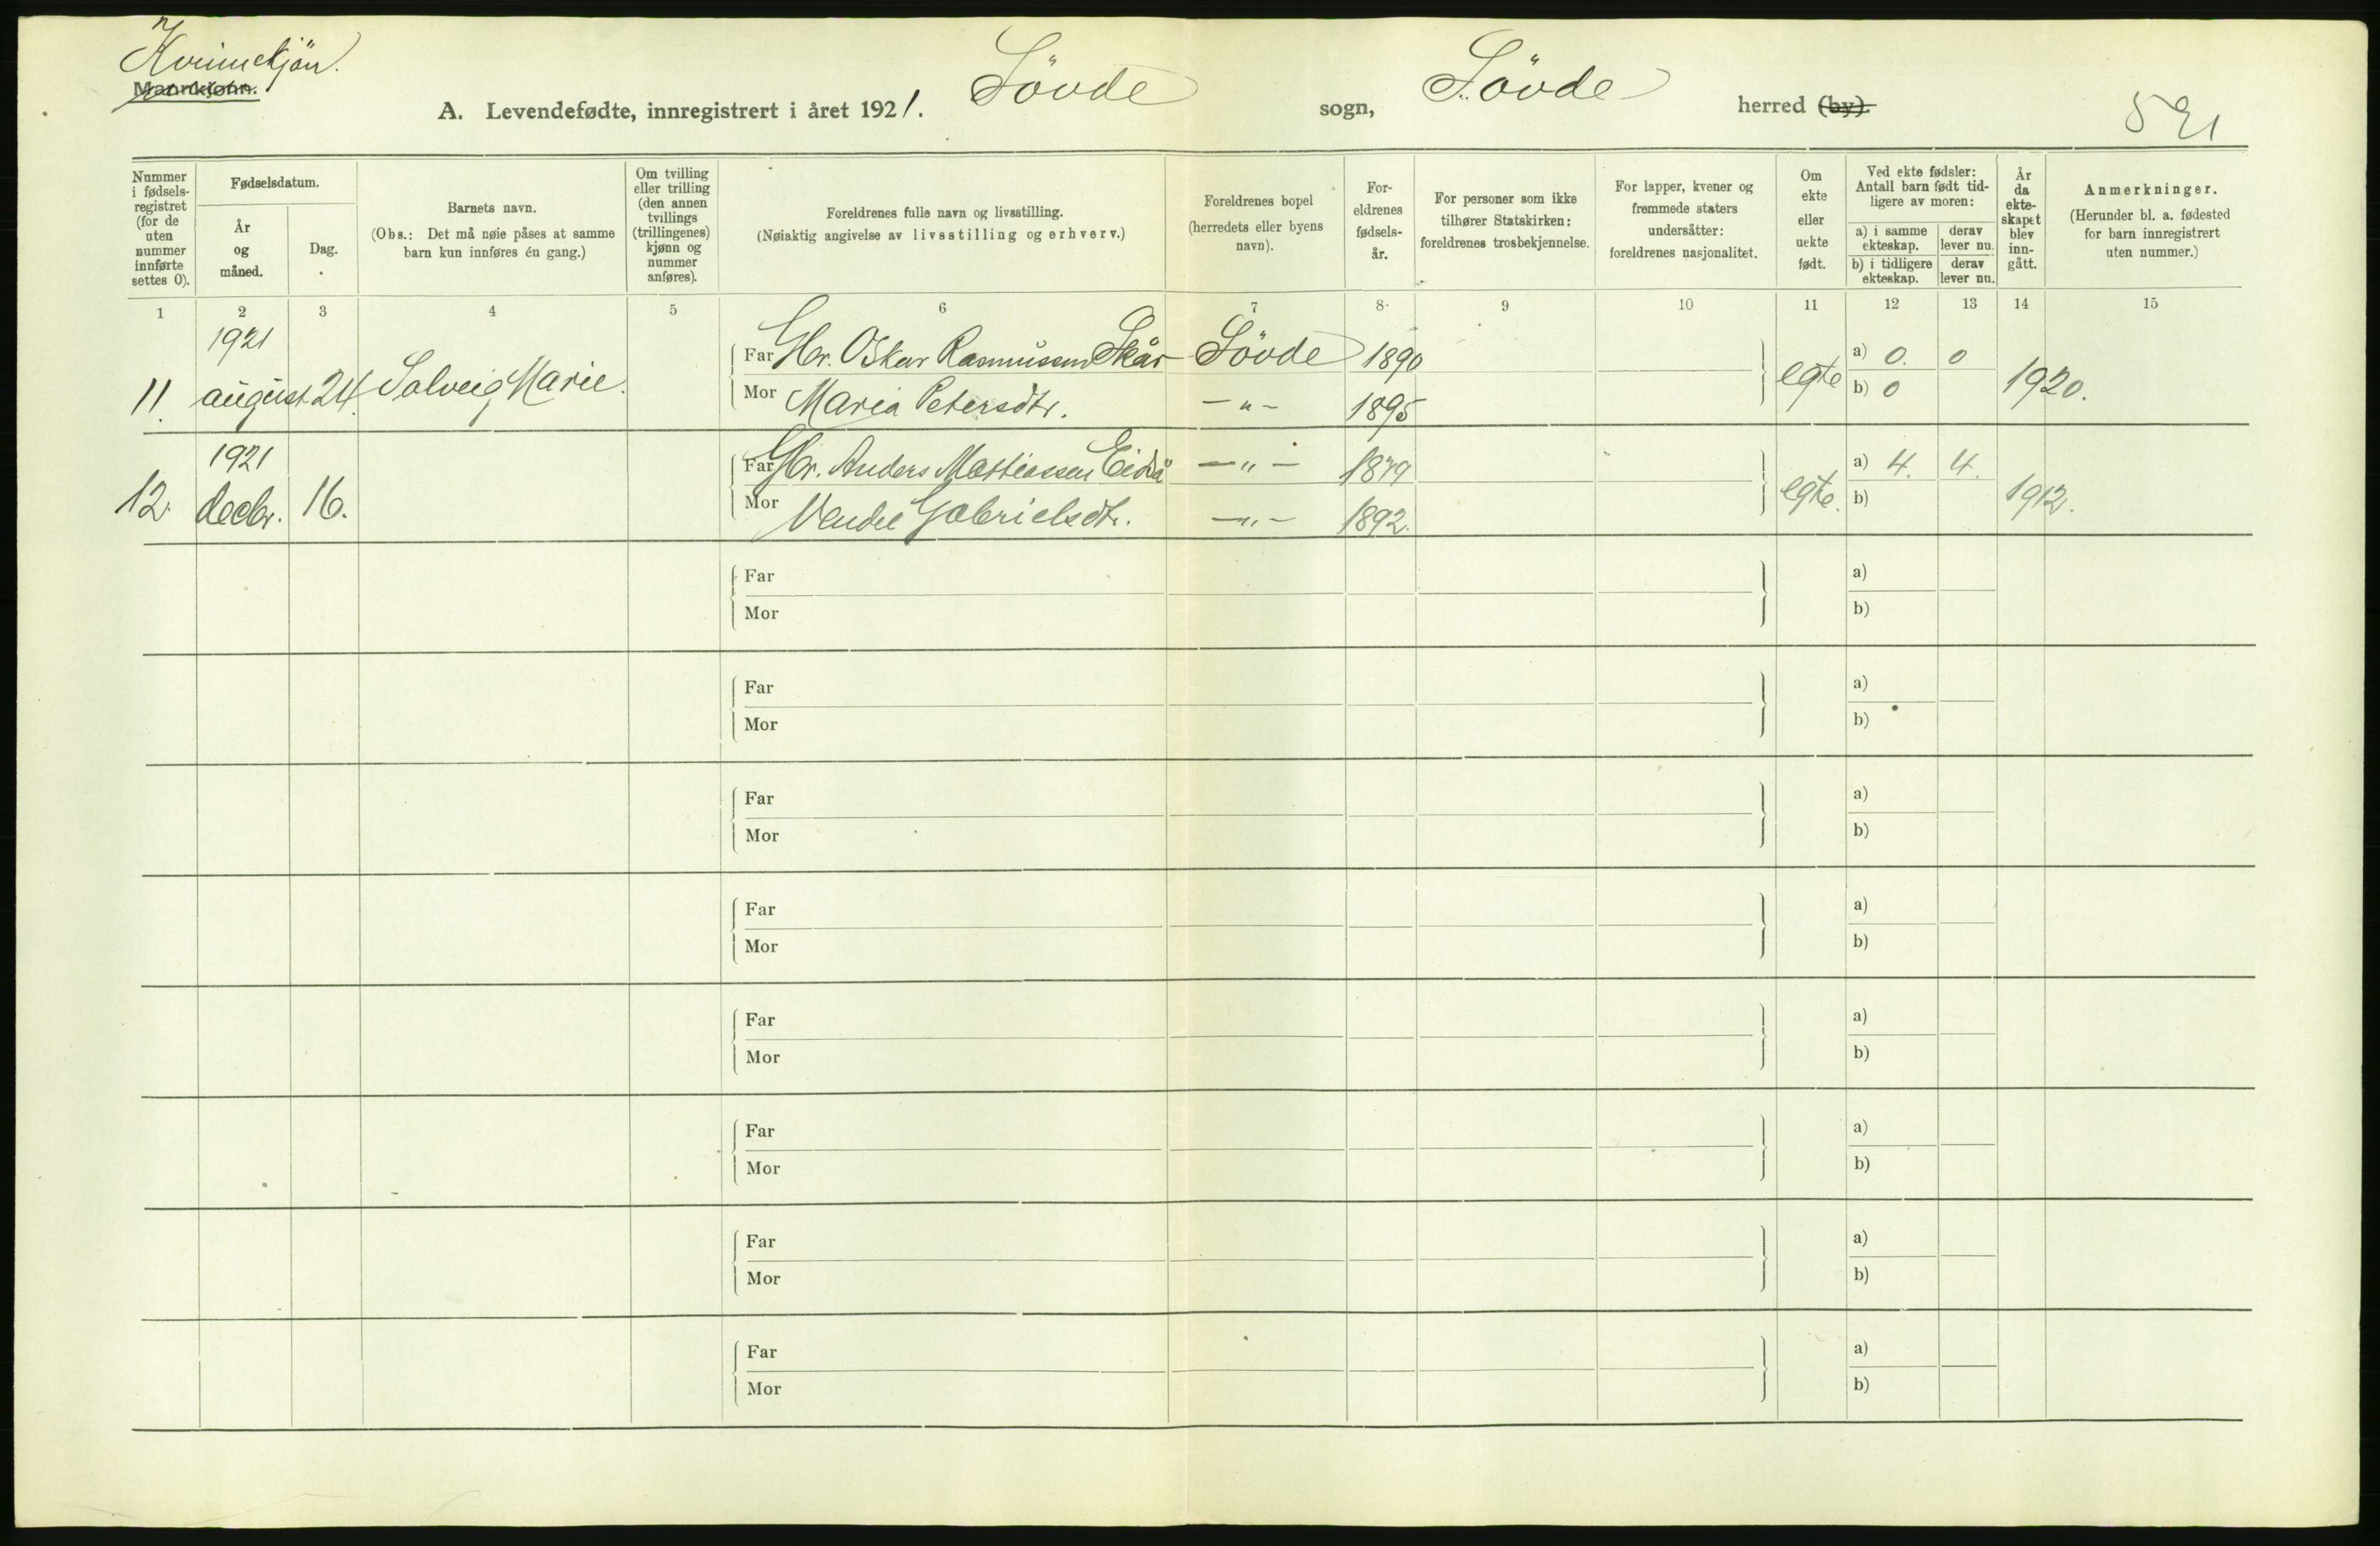 Kvinnekjön.
Mannkjønn.
A. Levendefødte, innregistrert i året 1921. Sövde sogn, Sövde herred (by).
591
Nummer i fødsels-registret (for de uten nummer innførte settes 0).
Fødselsdatum.
År og måned.
Dag.
Barnets navn.
(Obs.: Det må nøie påses at samme barn kun innføres én gang.)
Om tvilling eller trilling (den annen tvillings (trillingenes) kjønn og nummer anføres).
Foreldrenes fulle navn og livsstilling.
(Nøiaktig angivelse av livsstilling og erhverv.)
Foreldrenes bopel (herredets eller byens navn).
For-eldrenes fødsels-år.
For personer som ikke tilhører Statskirken: foreldrenes trosbekjennelse.
For lapper, kvener og fremmede staters undersåtter: foreldrenes nasjonalitet.
Om ekte eller uekte født.
Ved ekte fødsler: Antall barn født tid-ligere av moren:
a) i samme ekteskap.
derav lever nu.
b) i tidligere ekteskap.
derav lever nu.
År da ekte-skapet blev inn-gått.
Anmerkninger.
(Herunder bl. a. fødested for barn innregistrert uten nummer.)
1 2 3 4 5 6 7 8 9 10 11 12 13 14 15
1921
Far Gbr. Oskar Rasmussen Skår Sövde 1890 a) 0. 0
11. august 24. Solveig Marie. egte 1920.
Mor Maria Petersdtr. — „ — 1895 b) 0
1921
Far Gbr. Anders Mathiassen Eidså — „ — 1879 a) 4. 4.
12. decbr. 16. egte. 1912.
Mor Vendel Gabrielsdtr. — „ — 1892. b)
Far a)
Mor b)
Far a)
Mor b)
Far a)
Mor b)
Far a)
Mor b)
Far a)
Mor b)
Far a)
Mor b)
Far a)
Mor b)
Far a)
Mor b)